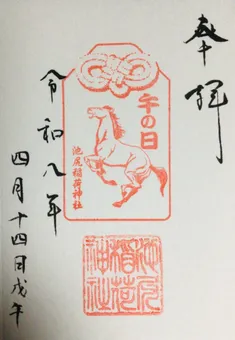 奉拝
午の日
池尻稲荷神社
池尻稲荷神社
令和八年
四月十四日戊午